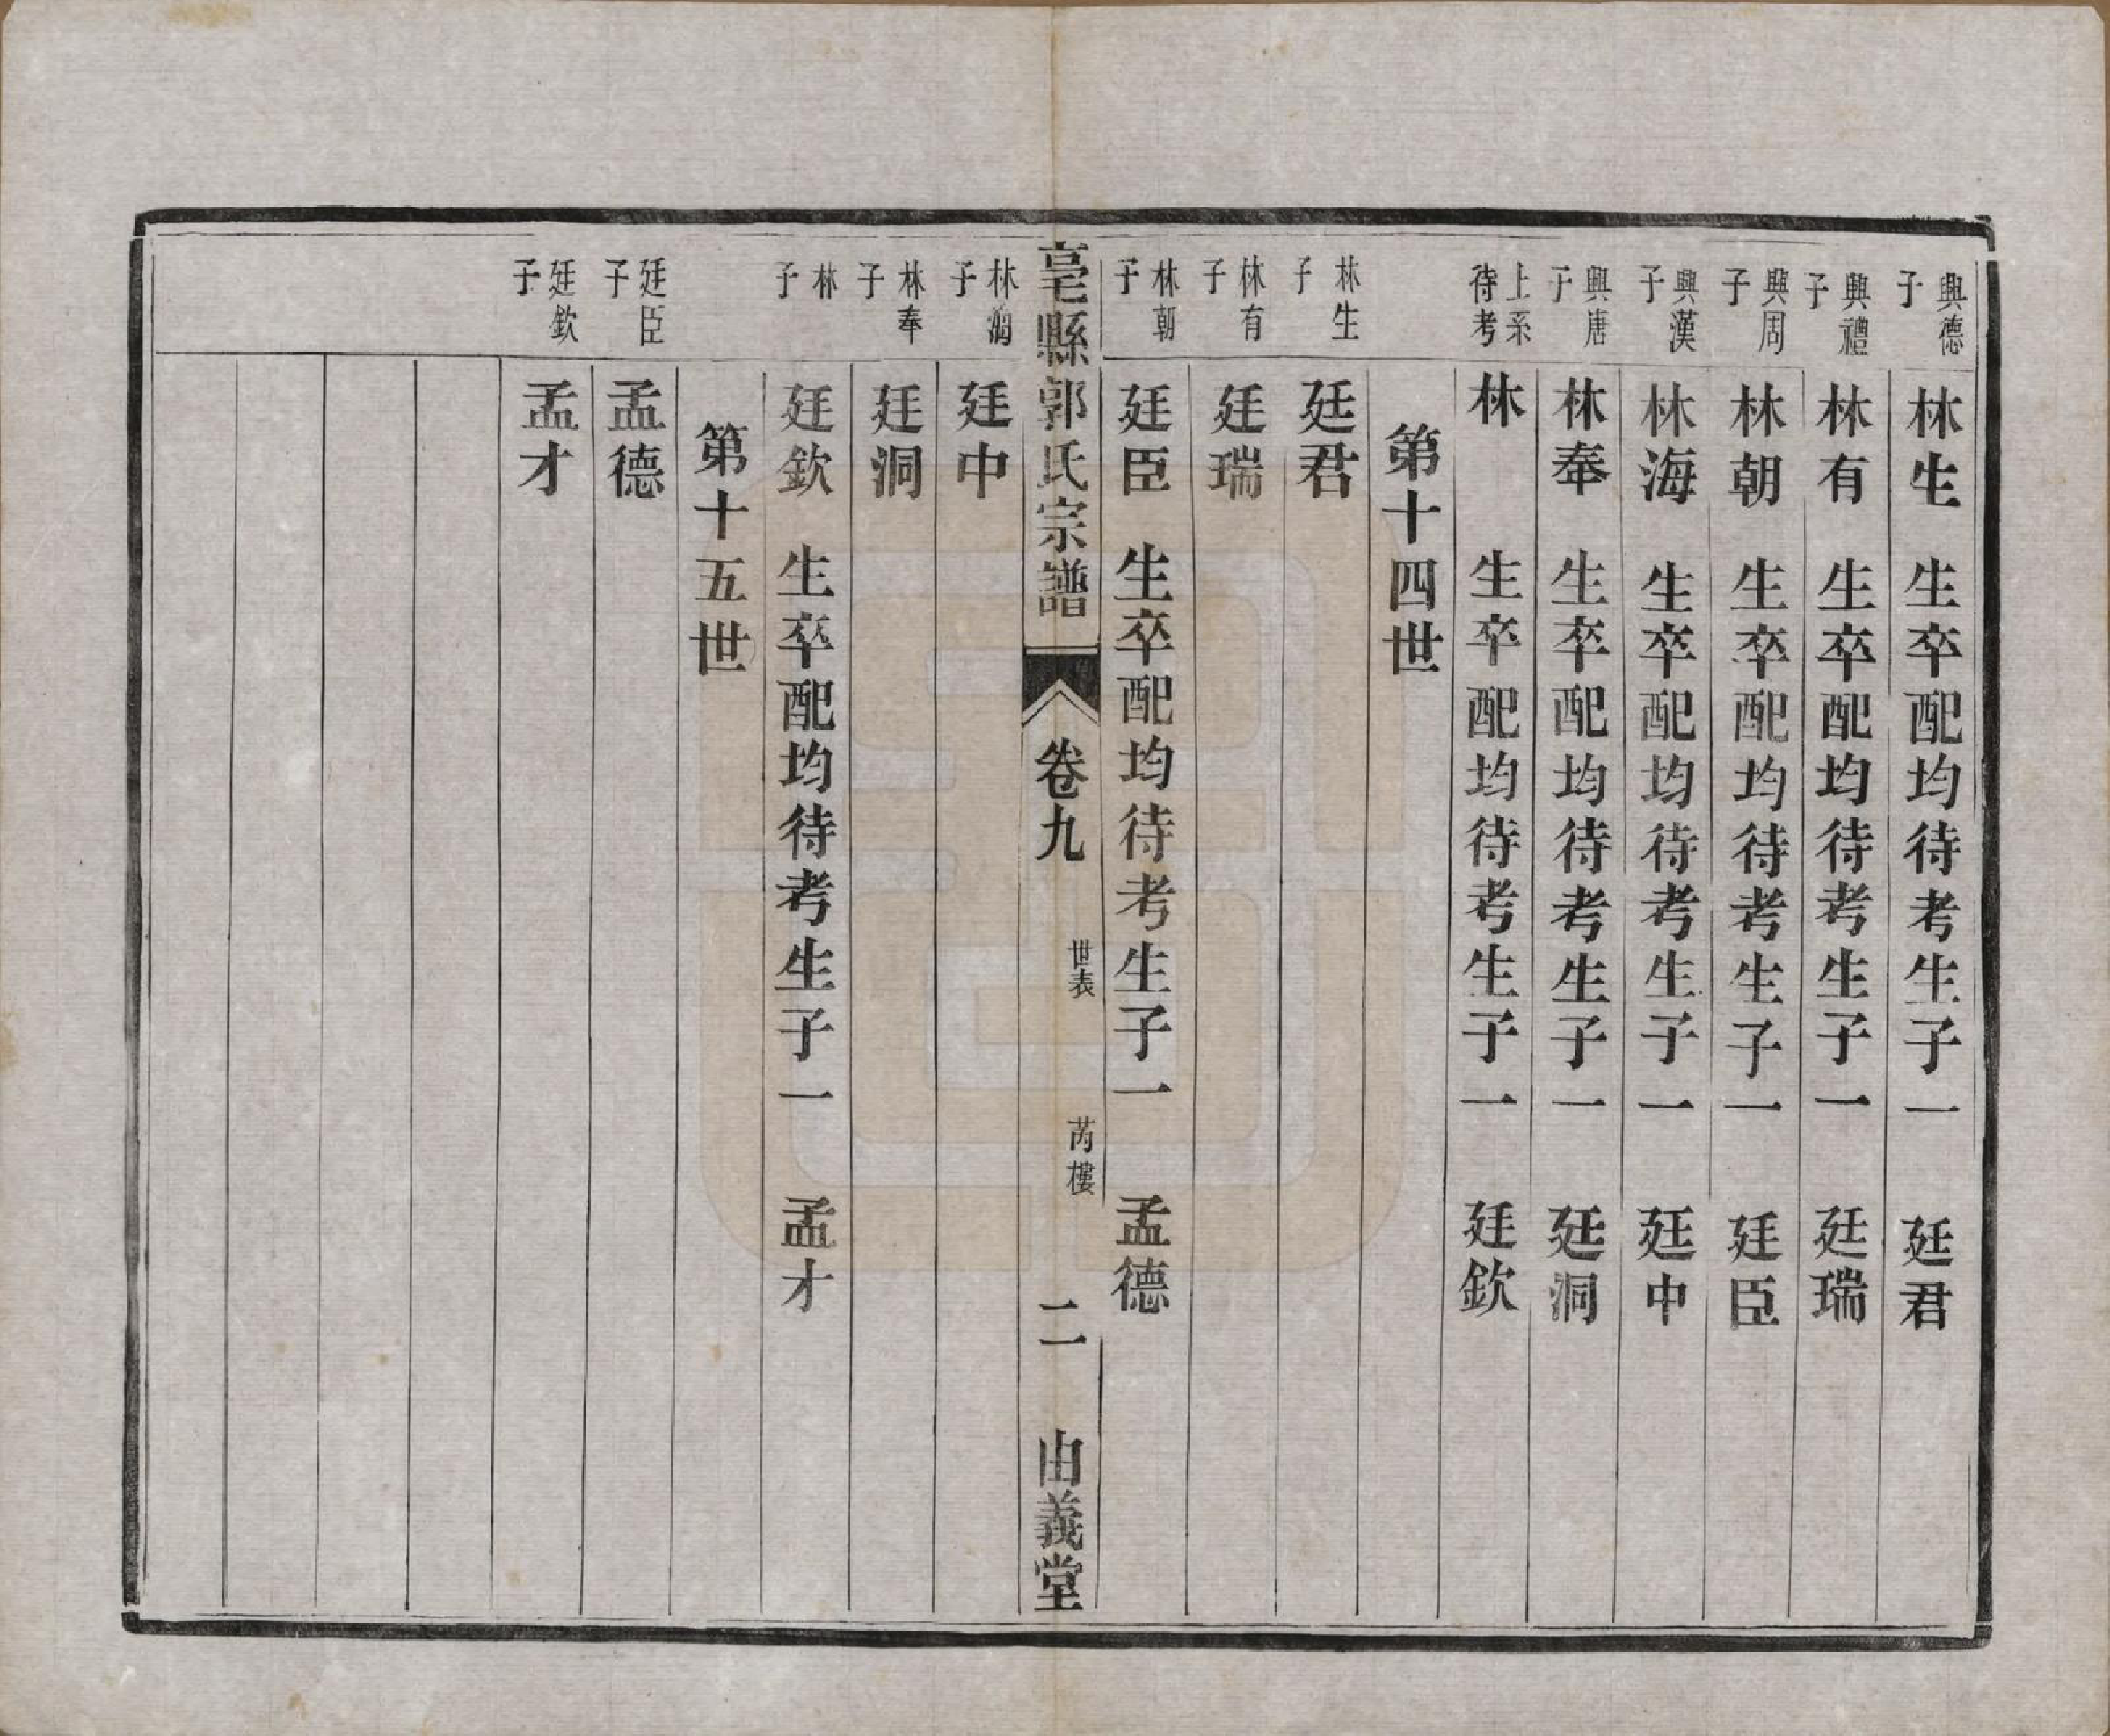 興德子
林生　生卒配均待考生子一　廷君
興禮子
林有　生卒配均待考生子一　廷瑞
興周子
林朝　生卒配均待考生子一　廷臣
興漢子
林海　生卒配均待考生子一　廷中
興唐子
林奉　生卒配均待考生子一　廷洞
上系待考
林　生卒配均待考生子一　廷欽
第十四世
林生子
廷君
林有子
廷瑞
林朝子
廷臣　生卒配均待考生子一　孟德
亳縣郭氏宗譜　卷九　世表　芮樓　二　由義堂
林子
廷中
林奉子
廷洞
林子
廷欽　生卒配均待考生子一　孟才
第十五世
廷臣子
孟德
廷欽子
孟才